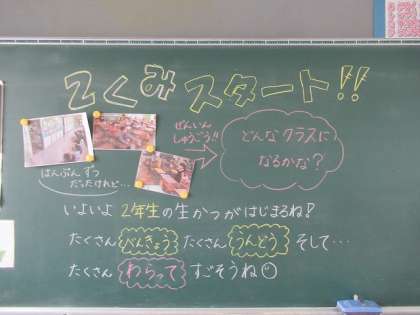 2くみスタート!!
ぜんいん
しゅうごう!!
どんなクラスに
なるかな?
はんぶんずつ
だったけれど…
いよいよ2年生の生かつがはじまるね!
たくさんべんきょうたくさんうんどうそして…
たくさんわらってすごそうね